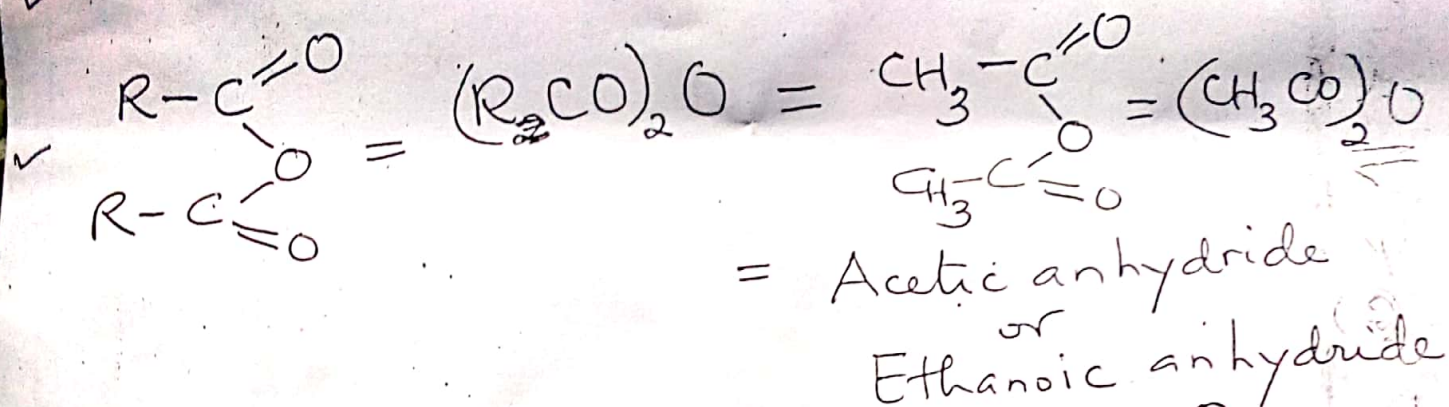 R-C=O O R-C=O = (R₂CO)₂O = CH₃-C=O O CH₃-C=O = (CH₃CO)₂O
= Acetic anhydride
or
Ethanoic anhydride